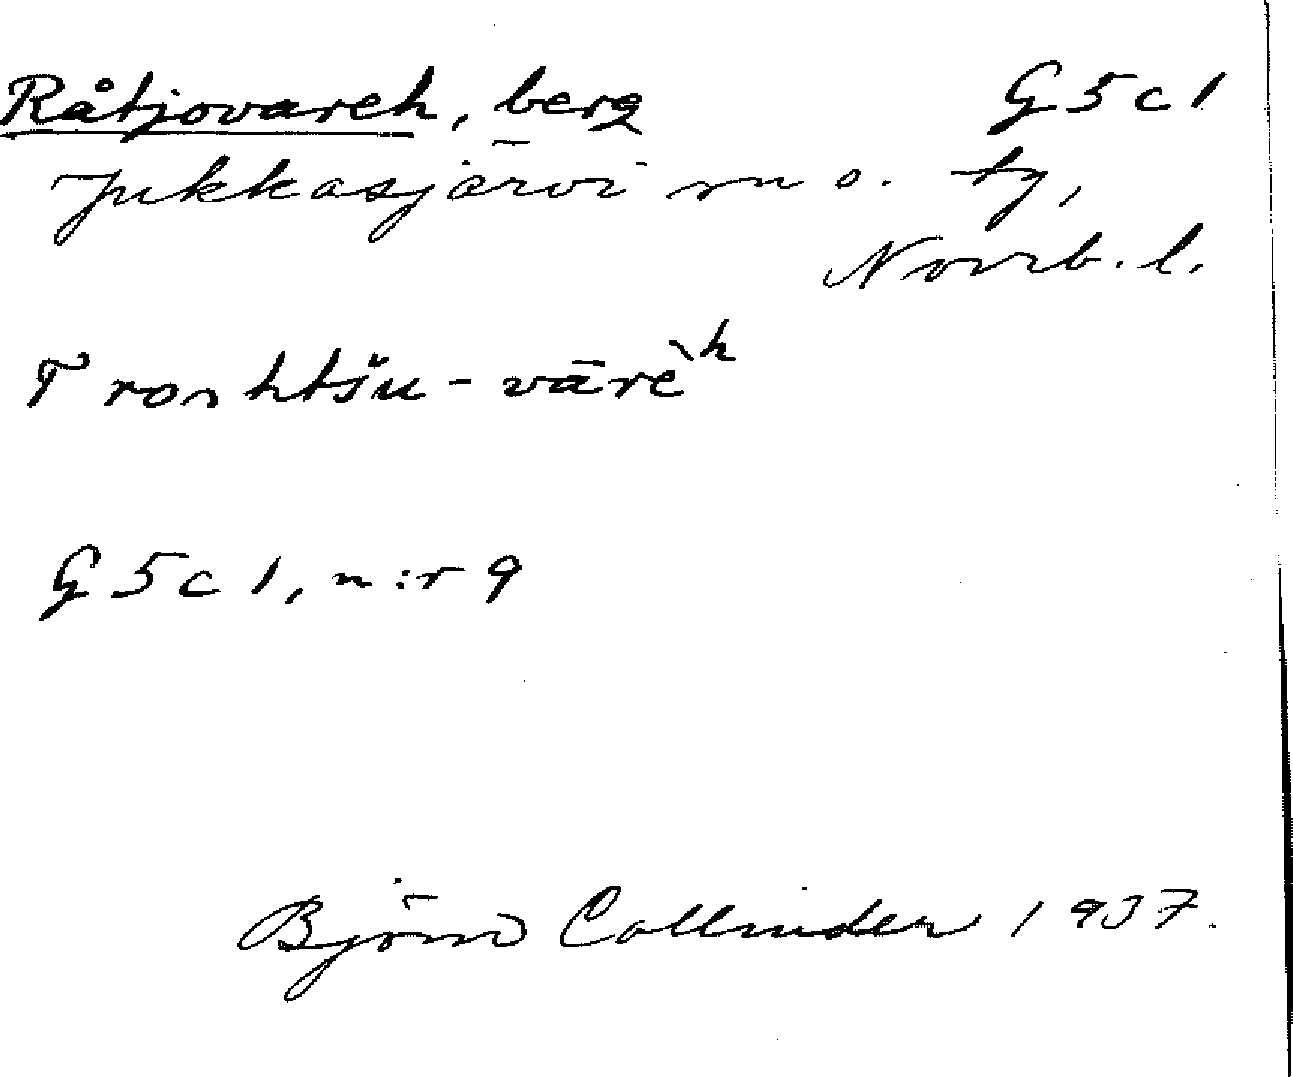 Råtjovareh, berg G5c1
Jukkasjärvi sn o. tg,
Norrb. l.
G5c1, n:r 9
Björn Collinder 1937.